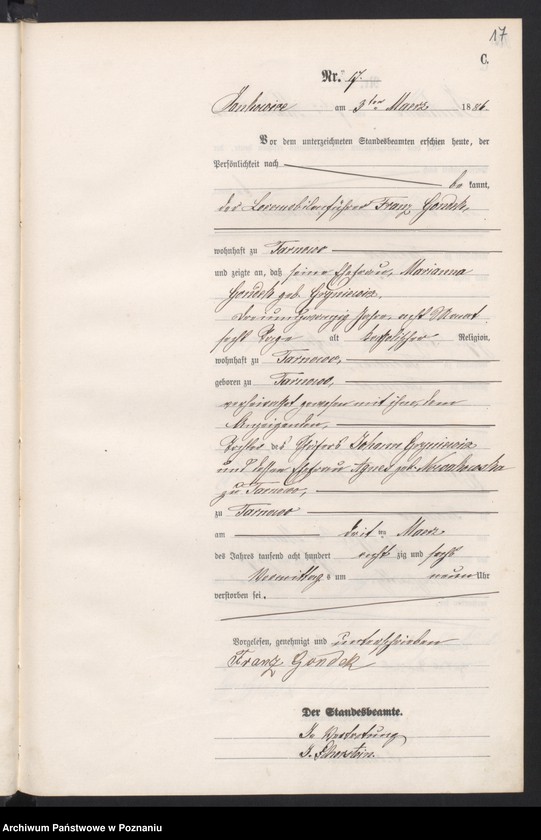 17
C.
Nr. 17.
Jankowice am 3ten Maerz 1886.
Vor dem unterzeichneten Standesbeamten erschien heute, der
Persönlichkeit nach
be kannt,
der Locomobilenführer Franz Gondek,
wohnhaft zu Tarnowo
und zeigte an, daß seine Ehefrau, Marianna
Gondek geb.
Jahre, acht Monat
sechs Tage alt katholischer Religion,
wohnhaft zu Tarnowo,
geboren zu Tarnowo,
verheirathet gewesen mit ihm, dem
Anzeigenden,
Tochter des Johann
und dessen Ehefrau Agnes geb. Nowakowska
zu Tarnowo,
zu Tarnowo
am dritten Maerz
des Jahres tausend acht hundert acht zig und sechs
Vormittags um neun Uhr
verstorben sei.
Vorgelesen, genehmigt und unterschrieben
Franz Gondek
Der Standesbeamte.
In Vertretung
Archiwum Państwowe w Poznaniu